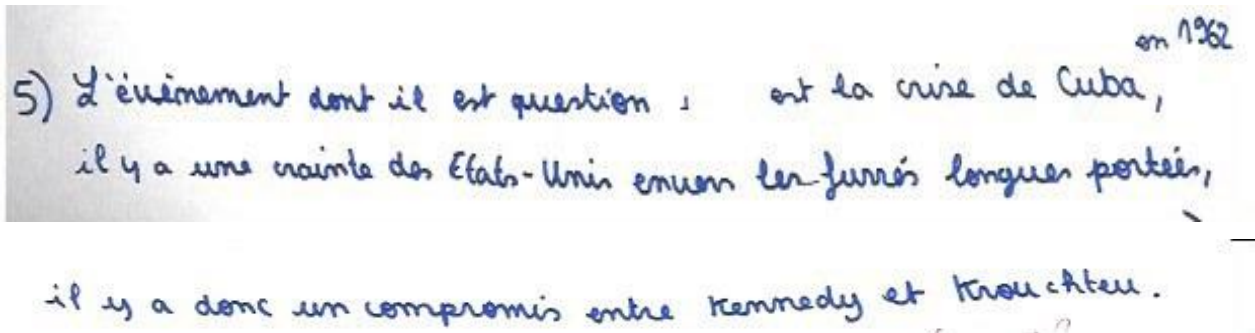 en 1962
5) L'évènement dont il est question : est la crise de Cuba,
il y a une crainte des Etats-Unis envers les furrés longues portées,
il y a donc un compromis entre Kennedy et Krouchteu.